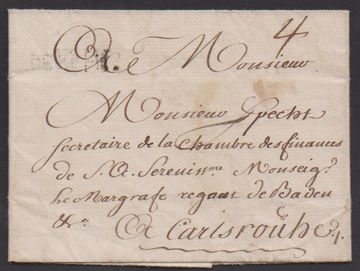 4
A Monsieur
Monsieur Specht
Secretaire de la Chambre des finances
de S. A. Serenissme Monseigr
Le Margrafe regant de Baden
&c
A Carlsrouhe